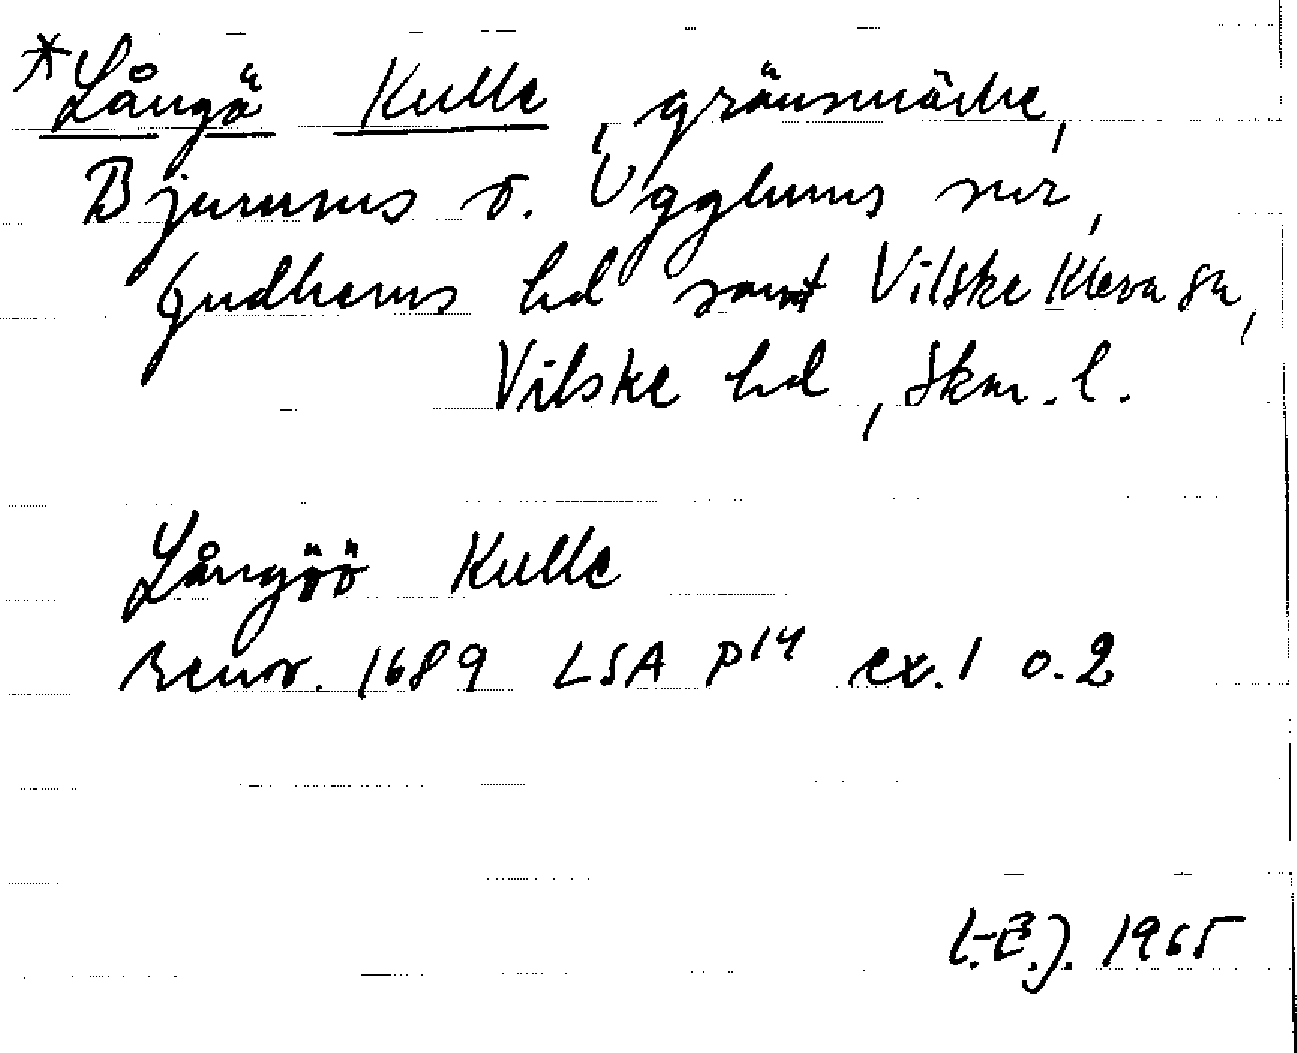 *Långö Kulle, gränsmärke,
Bjurums o. Ugglums snr,
Gudhems hd samt Vilske Kleva sn,
Vilske hd, Skar. l.
Långöö Kulle
Renov. 1689 LSA P14 ex. 1 o. 2
L.E.J. 1965